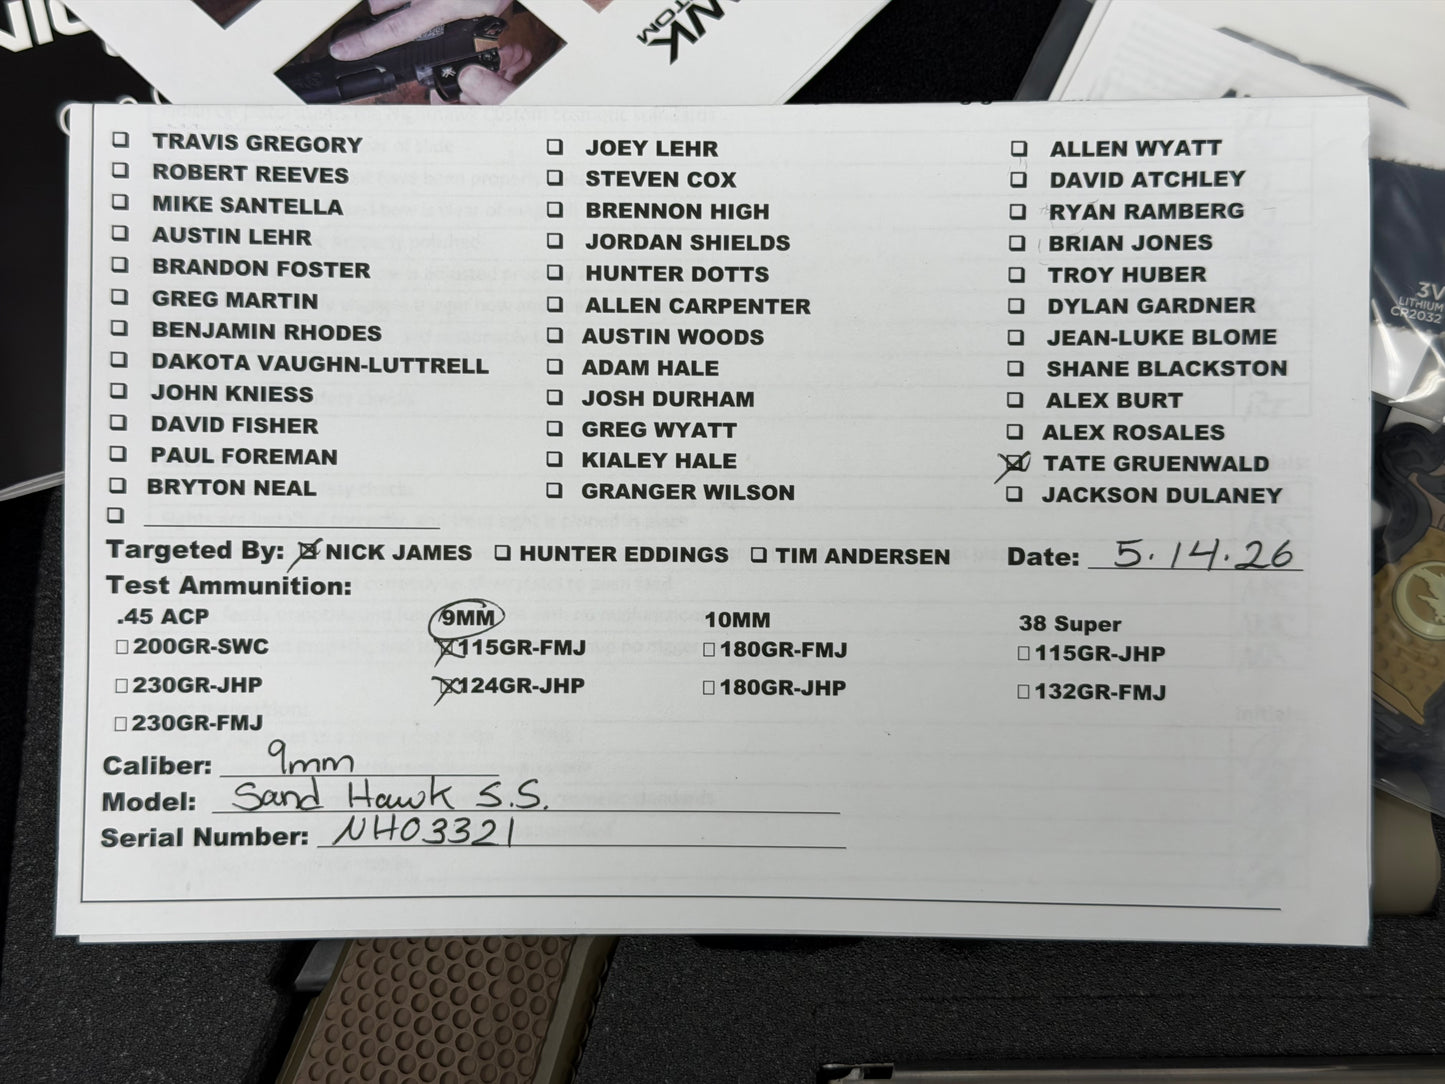 TOM
❏ TRAVIS GREGORY ❏ JOEY LEHR ❏ ALLEN WYATT
❏ ROBERT REEVES ❏ STEVEN COX ❏ DAVID ATCHLEY
❏ MIKE SANTELLA ❏ BRENNON HIGH ❏ RYAN RAMBERG
❏ AUSTIN LEHR ❏ JORDAN SHIELDS ❏ BRIAN JONES
❏ BRANDON FOSTER ❏ HUNTER DOTTS ❏ TROY HUBER
❏ GREG MARTIN ❏ ALLEN CARPENTER ❏ DYLAN GARDNER
❏ BENJAMIN RHODES ❏ AUSTIN WOODS ❏ JEAN-LUKE BLOME
❏ DAKOTA VAUGHN-LUTTRELL ❏ ADAM HALE ❏ SHANE BLACKSTON
❏ JOHN KNIESS ❏ JOSH DURHAM ❏ ALEX BURT
❏ DAVID FISHER ❏ GREG WYATT ❏ ALEX ROSALES
❏ PAUL FOREMAN ❏ KIALEY HALE ☒ TATE GRUENWALD
❏ BRYTON NEAL ❏ GRANGER WILSON ❏ JACKSON DULANEY
❏
Targeted By: ☒ NICK JAMES ❏ HUNTER EDDINGS ❏ TIM ANDERSEN Date: 5.14.26
Test Ammunition:
.45 ACP 9MM 10MM 38 Super
□200GR-SWC ☒115GR-FMJ □180GR-FMJ □115GR-JHP
□230GR-JHP ☒124GR-JHP □180GR-JHP □132GR-FMJ
□230GR-FMJ
Caliber: 9mm
Model: Sand Hawk S.S.
Serial Number: NH03321
3V
LITHIUM
CR2032